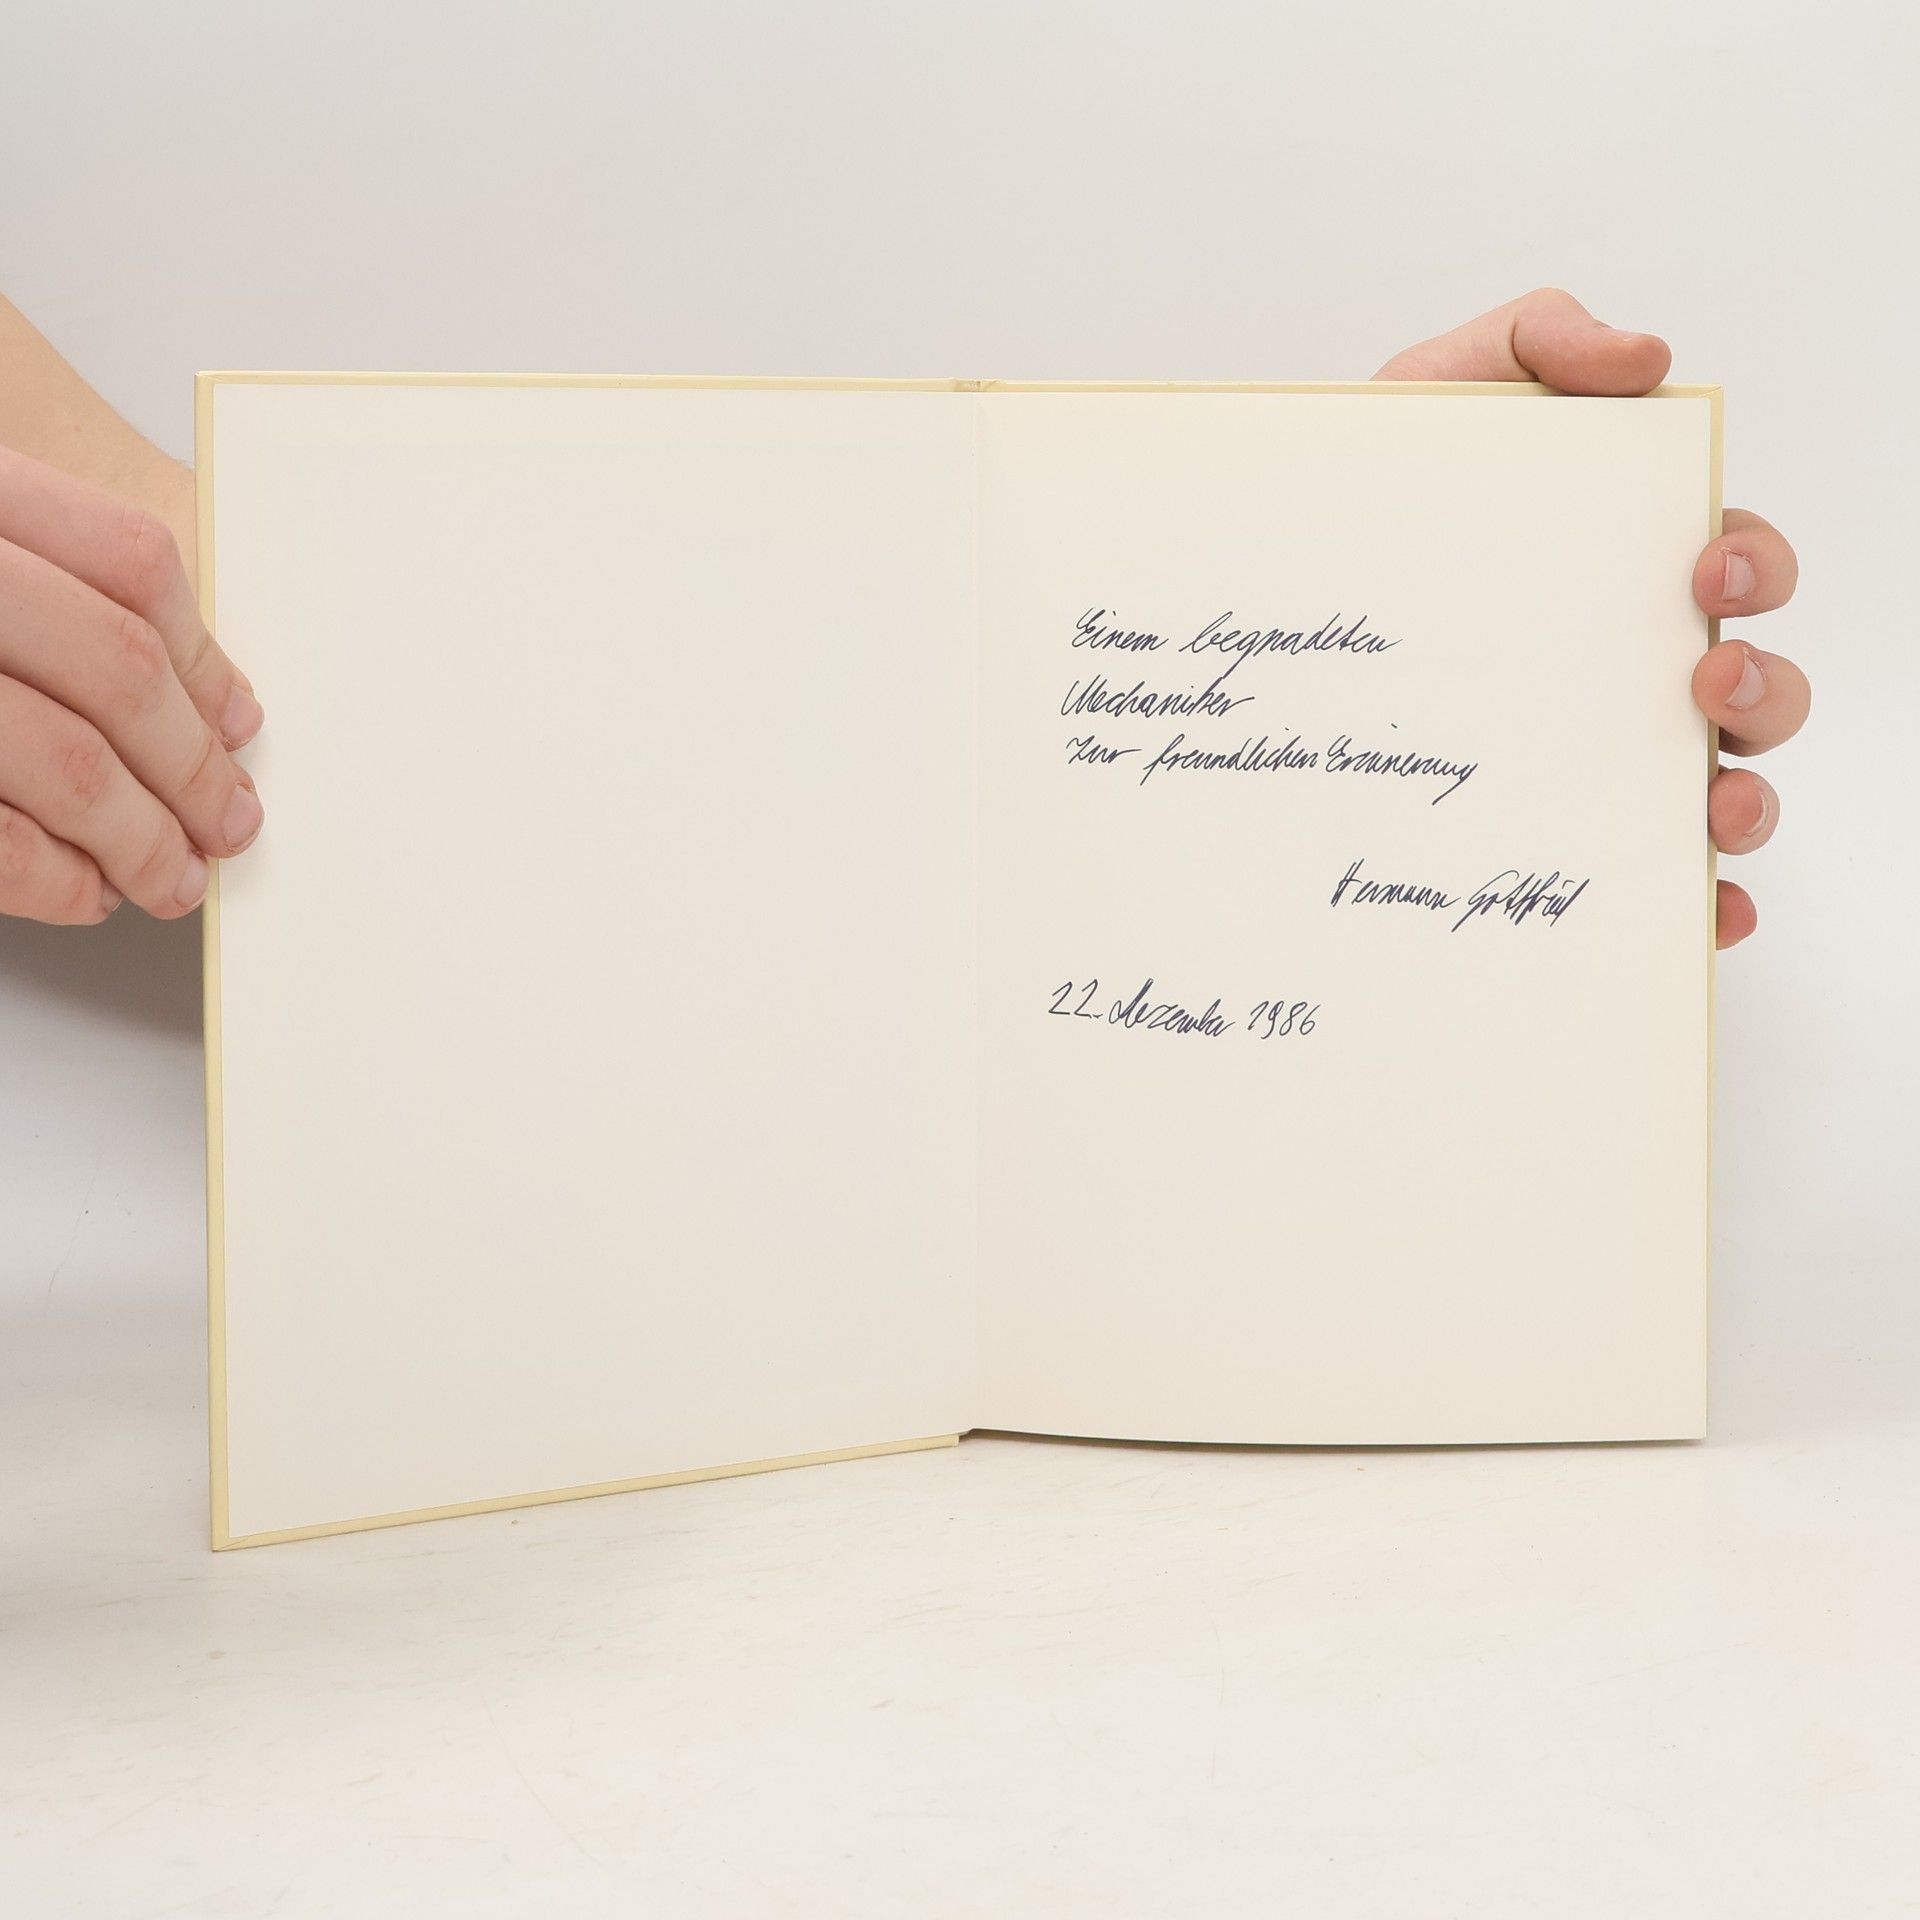 Einem begnadeten
Mechaniker
Zur freundlichen Erinnerung
Hermann Gottfried
22. Dezember 1986